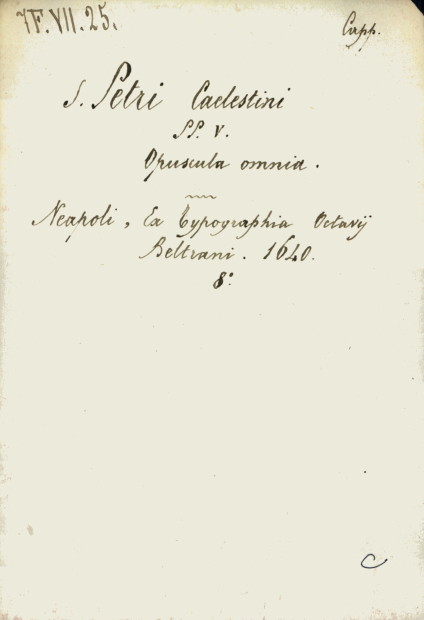 7F.VII.25.
Capp.
S. Petri Caelestini
PP. V.
Opuscula omnia.
Neapoli, Ex Typographia Octavij
Beltrani. 1640.
8°.
C